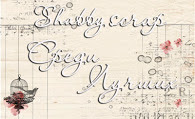 Shabby.scrap
Среди
Лучших